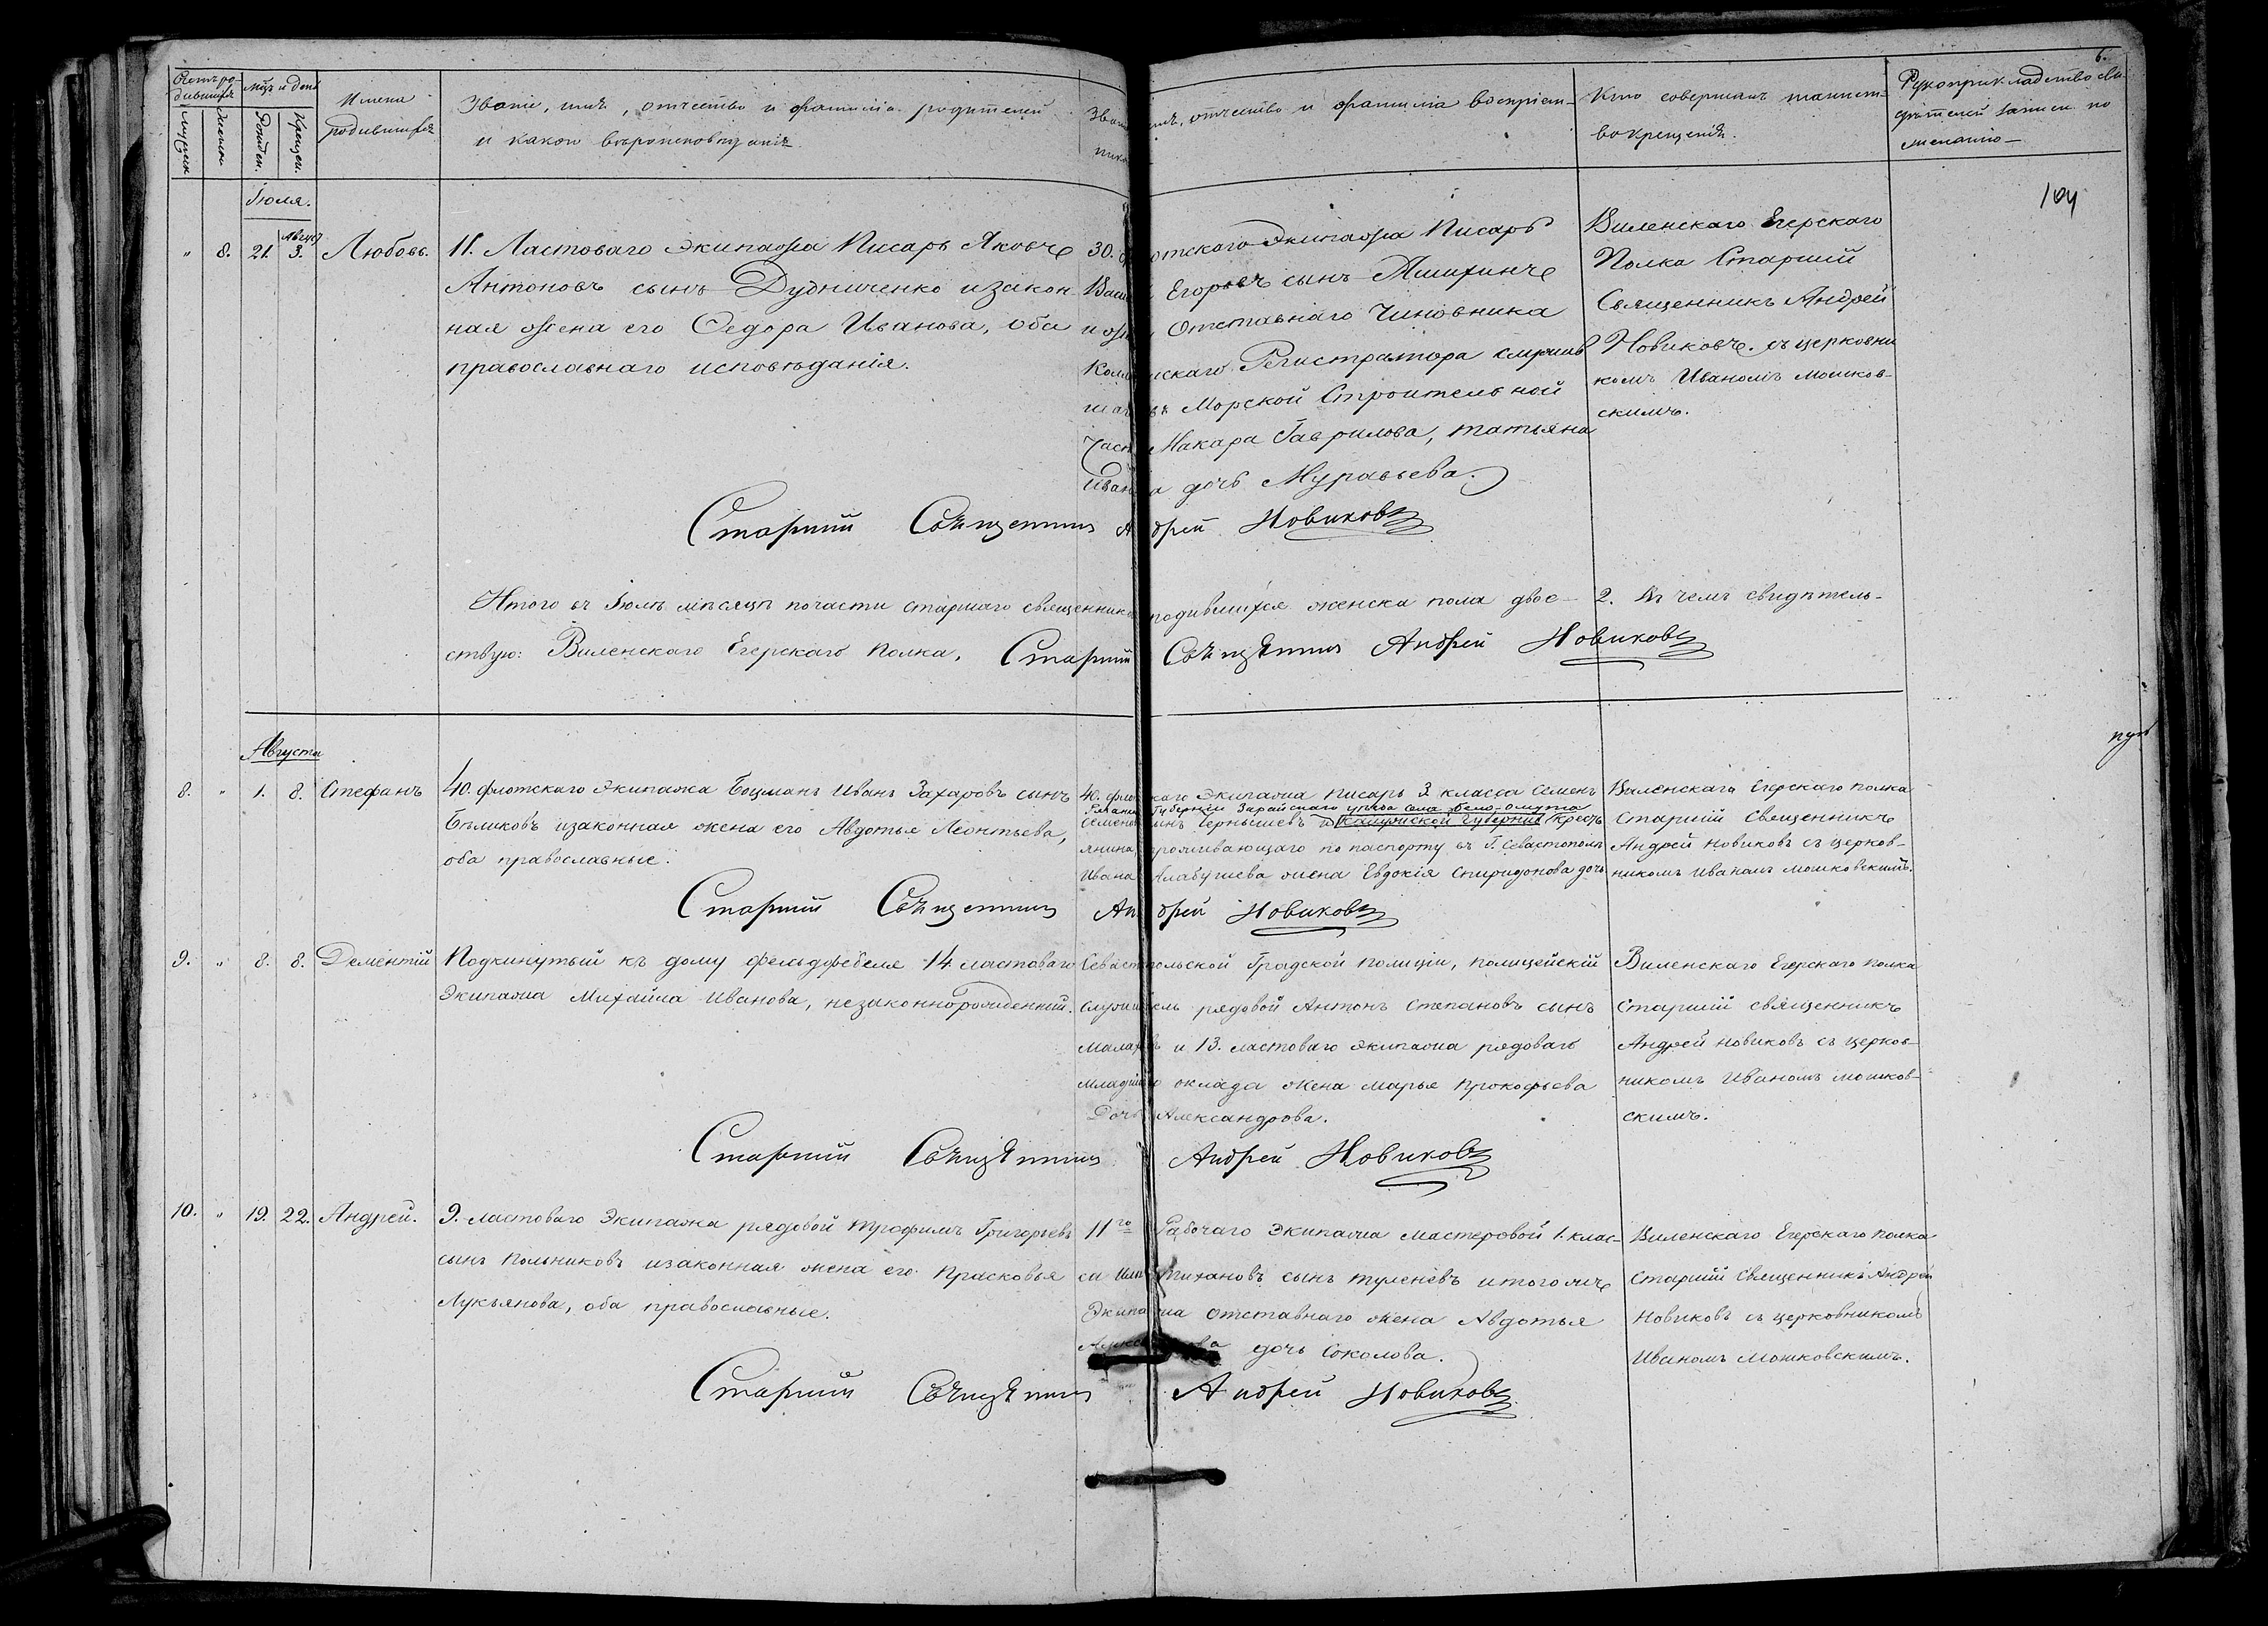 6.
Счетъ ро-
дившихся
Мцъ и день
Имена
родившихся
Званіе, имя, отчество и фамилія родителей
и какого вѣроисповѣданія
отчество и фамилія воспріем-
Кто совершалъ таинст-
во крещенія.
Рукоприкладство сви-
дѣтелей записи по
желанію
Мужеска
Женска
Рожден.
Крещен.
104
Іюля.
" 8. 21. Август 3. Любовь.
11. Ластоваго Экипажа Писарь Яковъ
Антоновъ сынъ Дудниченко и закон-
ная жена его Ѳедора Иванова, оба
православнаго исповѣданія.
30. флотскаго Экипажа Писарь
Егоровъ сынъ
и жена Отставнаго Чиновника
Регистратора
въ Морской Строительной
Части Макара Гаврилова, Татьяна
Иванова дочь Муравьева.
Виленскаго Егерскаго
Полка Старшій
Священникъ Андрей
Новиковъ. съ церковни
комъ Иваномъ Мошков-
скимъ.
Старшій Священникъ Андрей Новиковъ
Итого въ Іюлѣ мѣсяцѣ по части старшаго священника родившихся женска пола двое 2. Въ чемъ свидѣтель-
ствую: Виленскаго Егерскаго полка, Старшій Священникъ Андрей Новиковъ
Августа
8. " 1. 8. Стефанъ
40. флотскаго Экипажа Боцманъ Иванъ Захаровъ сынъ
Бѣликовъ и законная жена его Авдотья Леонтьева,
оба православные.
40. флотскаго Экипажа писарь 3. класса Семенъ
губерніи Зарайскаго уѣзда села Бело-омута
Чернышевъ и Калужской Губерніи крестъ
янина, проживающаго по паспорту въ Г. Севастополѣ
Ивана Алабушева жена Евдокія Спиридонова дочь
Виленскаго Егерскаго полка
Старшій Священникъ
Андрей Новиковъ съ церков-
никомъ Иваномъ Мошковскимъ.
Старшій Священникъ Андрей Новиковъ
9. " 8. 8. Дементій
Подкинутый къ дому фельдфебеля 14 ластоваго
Экипажа Михайла Иванова, незаконнорожденный.
Севастопольской Градской полиціи, полицейскій
служитель рядовой Антонъ Степановъ сынъ
и 13. ластоваго экипажа рядоваго
младшаго оклада жена Марья Прокофьева
Дочь Александрова.
Виленскаго Егерскаго полка
Старшій священникъ
Андрей Новиковъ съ церков-
никомъ Иваномъ Мошков-
скимъ.
Старшій Священникъ Андрей Новиковъ
10. " 19. 22. Андрей.
9. ластоваго Экипажа рядовой Трофимъ Григорьевъ
сынъ Польниковъ и законная жена его Прасковья
Лукьянова, оба православные.
11го Рабочаго Экипажа Мастеровой 1. клас-
са сынъ Туленевъ и того же
Экипажа отставнаго жена Авдотья
дочь Соколова.
Виленскаго Егерскаго полка
Старшій Священникъ Андрей
Новиковъ съ церковникомъ
Иваномъ Мошковскимъ.
Старшій Священникъ Андрей Новиковъ